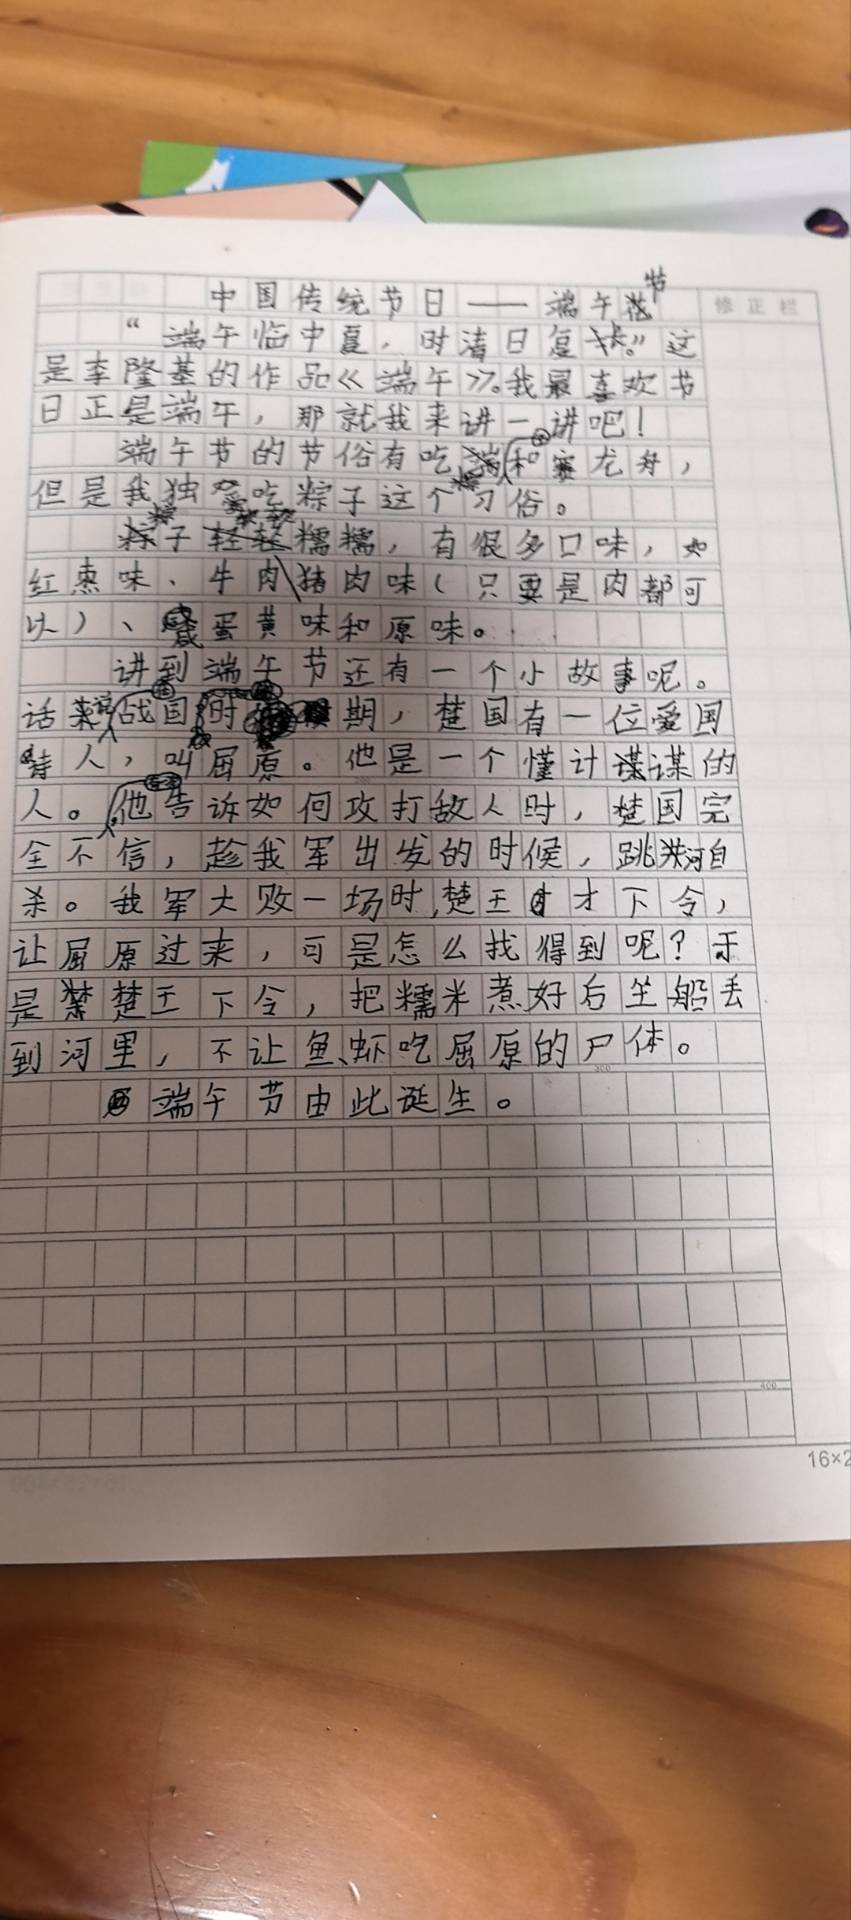 中国传统节日——端午节
修正栏
“端午临中夏，时清日复长。”这
是李隆基的作品《端午》。我最喜欢节
日正是端午，那就我来讲一讲吧！
端午节的节俗有吃和赛龙舟，
但是我独爱吃粽子这个习俗。
粽子糯糯，有很多口味，如
红枣味、牛肉\猪肉味（只要是肉都可
以）、咸蛋黄味和原味。
讲到端午节还有一个小故事呢。
话说战国时期，楚国有一位爱国
诗人，叫屈原。他是一个懂计谋的
人。他告诉如何攻打敌人时，楚国完
全不信，趁我军出发的时候，跳河自
杀。我军大败一场时，楚王才下令，
让屈原过来，可是怎么找得到呢？于
是楚王下令，把糯米煮好后坐船丢
到河里，不让鱼、虾吃屈原的尸体。
300
端午节由此诞生。
400
16×2